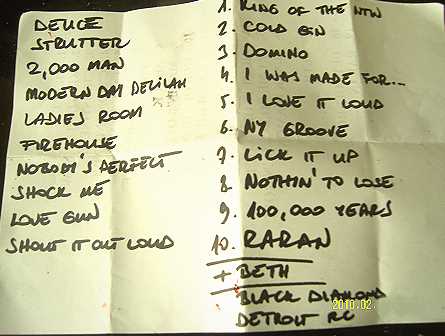 DEUCE
STRUTTER
2,000 MAN
MODERN DAY DELILAH
LADIES ROOM
FIREHOUSE
NOBODY'S PERFECT
SHOCK ME
LOVE GUN
SHOUT IT OUT LOUD
1. KING OF THE NTW
2. COLD GIN
3. DOMINO
4. I WAS MADE FOR...
5. I LOVE IT LOUD
6. NY GROOVE
7. LICK IT UP
8. NOTHIN' TO LOSE
9. 100,000 YEARS
10. RARAN
+ BETH
BLACK DIAMOND
DETROIT RC
2010.02.